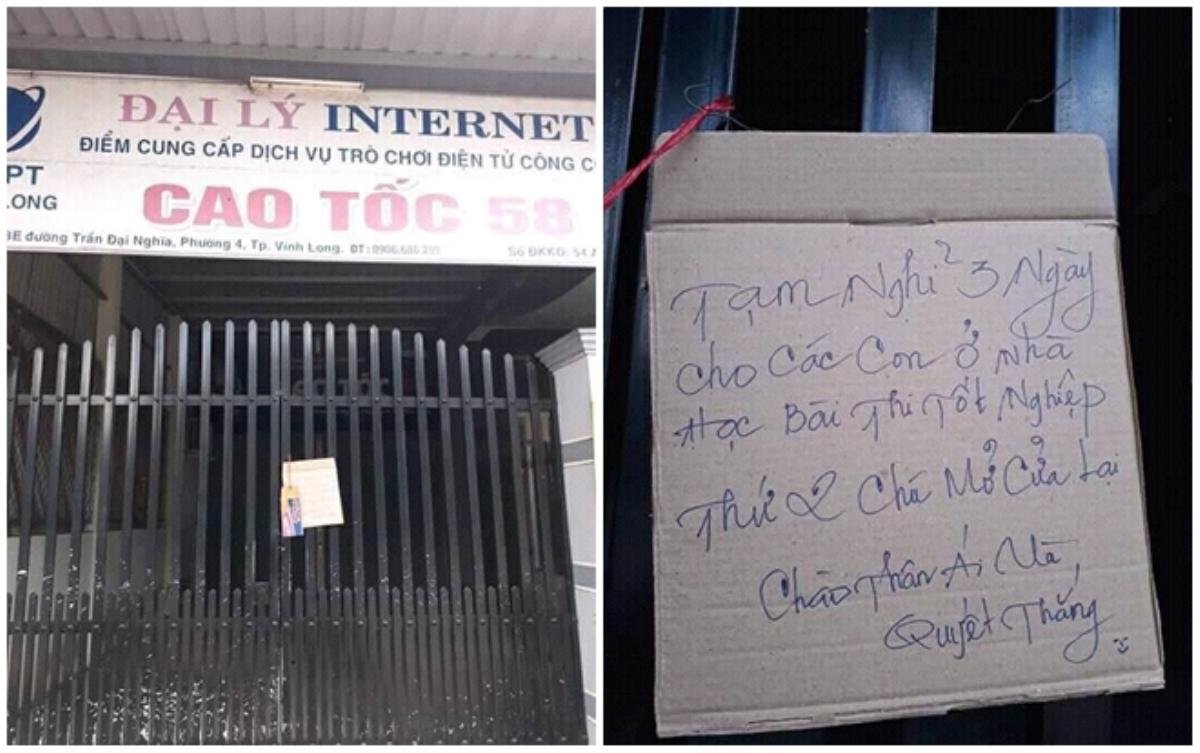 ĐẠI LÝ INTERNET
ĐIỂM CUNG CẤP DỊCH VỤ TRÒ CHƠI ĐIỆN TỬ CÔNG C
PT
LONG
CAO TỐC 58
3E đường Trần Đại Nghĩa, Phường 4, Tp. Vĩnh Long. ĐT: 0906.686.299
Số ĐKKD: 54.A
Tạm Nghỉ 3 Ngày
cho Các Con ở nhà
Học Bài Thi Tốt Nghiệp
Thứ 2 Chú Mở Cửa Lại
Chào Thân Ái Và
Quyết Thắng